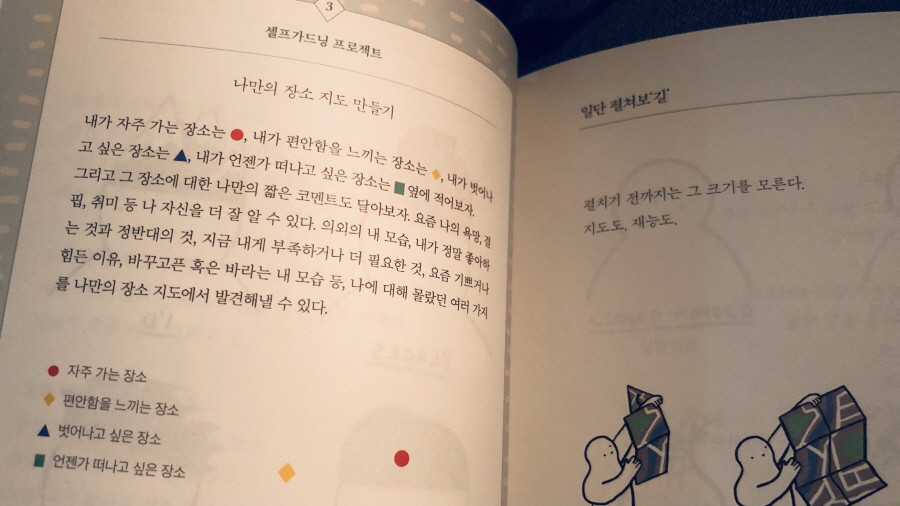 3
셀프가드닝 프로젝트
나만의 장소 지도 만들기
내가 자주 가는 장소는 ●, 내가 편안함을 느끼는 장소는 ◆, 내가 벗어나
고 싶은 장소는 ▲, 내가 언젠가 떠나고 싶은 장소는 ■ 옆에 적어보자.
그리고 그 장소에 대한 나만의 짧은 코멘트도 달아보자. 요즘 나의 욕망, 결
핍, 취미 등 나 자신을 더 잘 알 수 있다. 의외의 내 모습, 내가 정말 좋아하
는 것과 정반대의 것, 지금 내게 부족하거나 더 필요한 것, 요즘 기쁘거나
힘든 이유, 바꾸고픈 혹은 바라는 내 모습 등, 나에 대해 몰랐던 여러 가지
를 나만의 장소 지도에서 발견해낼 수 있다.
● 자주 가는 장소
◆ 편안함을 느끼는 장소
▲ 벗어나고 싶은 장소
■ 언젠가 떠나고 싶은 장소
일단 펼쳐보'길'
펼치기 전까지는 그 크기를 모른다.
지도도, 재능도.